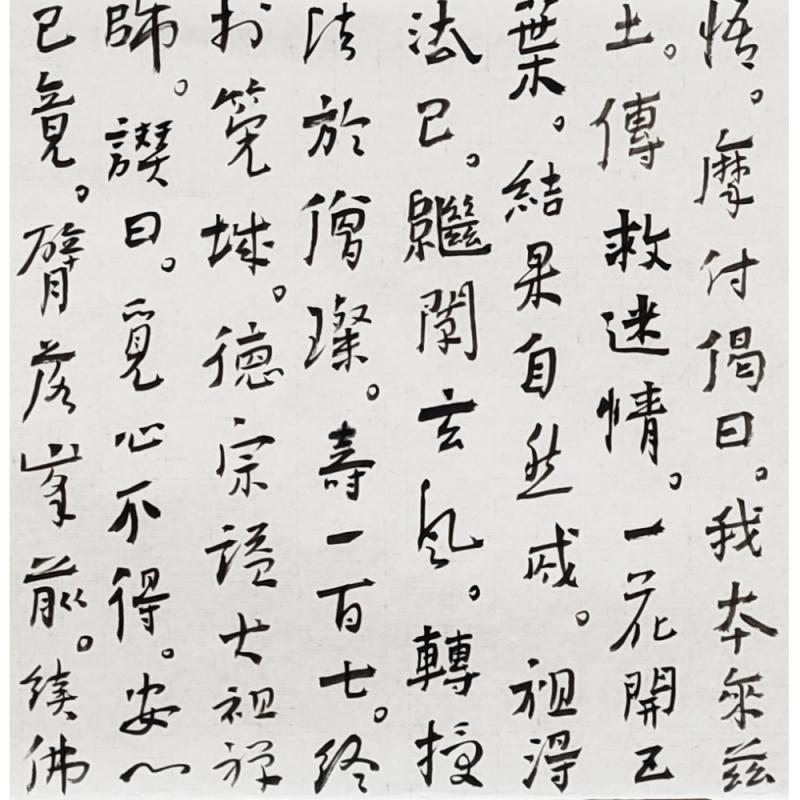 悟。摩付偈曰。我本來茲
土。傳救迷情。一花開五
葉。結果自然成。祖得
法已。繼闡玄風。轉授
法於僧璨。壽一百七。終
扵筦城。德宗謚大祖禅
師。讚曰。覓心不得。安心
已竟。臂落峯前。續佛